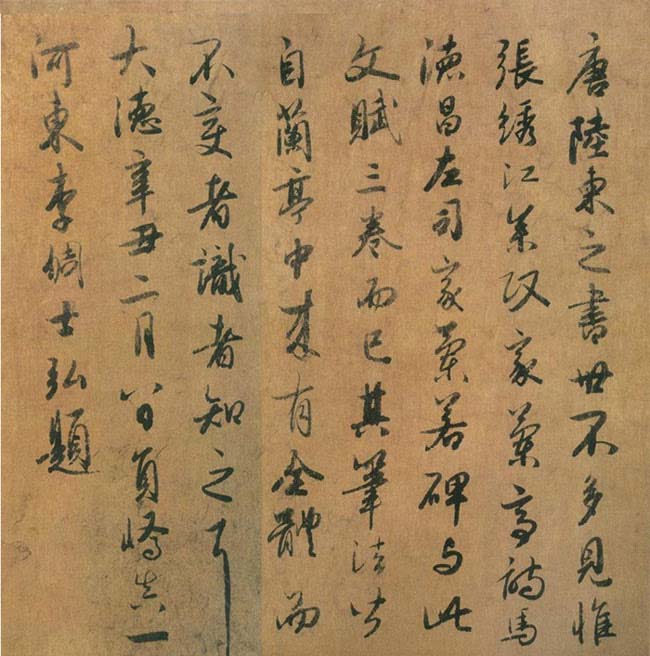 唐陸柬之書世不多見惟
張綉江参政家蘭亭詩馬
德昌左司家蘭若碑与此
文賦三卷而已其筆法皆
自蘭亭中来有全體而
不变者識者知之耳
大德辛丑二月八日員嶠真一
河東李倜士弘題